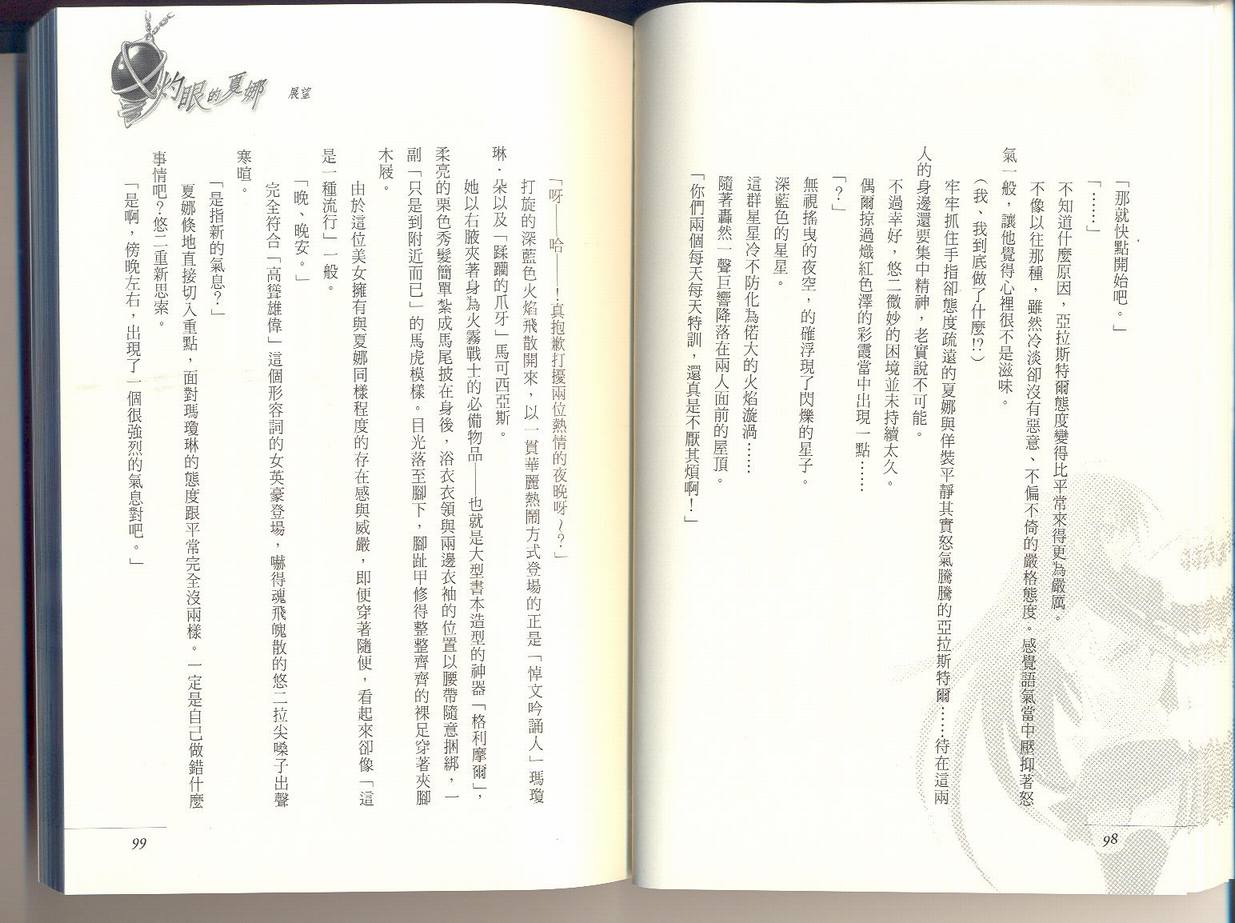 「那就快點開始吧。」
「……」
不知道什麼原因，亞拉斯特爾態度變得比平常來得更為嚴厲。
不像以往那種，雖然冷淡卻沒有惡意、不偏不倚的嚴格態度。感覺語氣當中壓抑著怒
氣一般，讓他覺得心裡很不是滋味。
（我、我到底做了什麼!?）
牢牢抓住手指卻態度疏遠的夏娜與佯裝平靜其實怒氣騰騰的亞拉斯特爾……待在這兩
人的身邊還要集中精神，老實說不可能。
不過幸好，悠二微妙的困境並未持續太久。
偶爾掠過熾紅色澤的彩霞當中出現一點……
「？」
無視搖曳的夜空，的確浮現了閃爍的星子。
深藍色的星星。
這群星星冷不防化為偌大的火焰漩渦……
隨著轟然一聲巨響降落在兩人面前的屋頂。
「你們兩個每天每天特訓，還真是不厭其煩啊！」
98
灼眼的夏娜 展望
「呀——哈——！真抱歉打擾兩位熱情的夜晚呀～？」
打旋的深藍色火焰飛散開來，以一貫華麗熱鬧方式登場的正是「悼文吟誦人」瑪瓊
琳．朵以及「蹂躪的爪牙」馬可西亞斯。
她以右腋夾著身為火霧戰士的必備物品——也就是大型書本造型的神器「格利摩爾」，
柔亮的栗色秀髮簡單紮成馬尾披在身後，浴衣衣領與兩邊衣袖的位置以腰帶隨意捆綁，一
副「只是到附近而已」的馬虎模樣。目光落至腳下，腳趾甲修得整整齊齊的裸足穿著夾腳
木屐。
由於這位美女擁有與夏娜同樣程度的存在感與威嚴，即便穿著隨便，看起來卻像「這
是一種流行」一般。
「晚、晚安。」
完全符合「高聳雄偉」這個形容詞的女英豪登場，嚇得魂飛魄散的悠二拉尖嗓子出聲
寒暄。
「是指新的氣息？」
夏娜倏地直接切入重點，面對瑪瓊琳的態度跟平常完全沒兩樣。一定是自己做錯什麼
事情吧？悠二重新思索。
「是啊，傍晚左右，出現了一個很強烈的氣息對吧。」
99